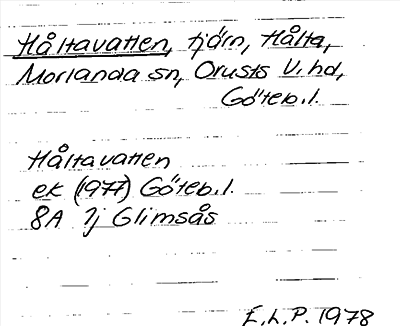 Håltavatten, tjärn, Hålta,
Morlanda sn, Orusts V. hd,
Göteb. l.
Håltavatten
ek (1977) Göteb. l.
8A 7j Glimsås
E. L. P. 1978